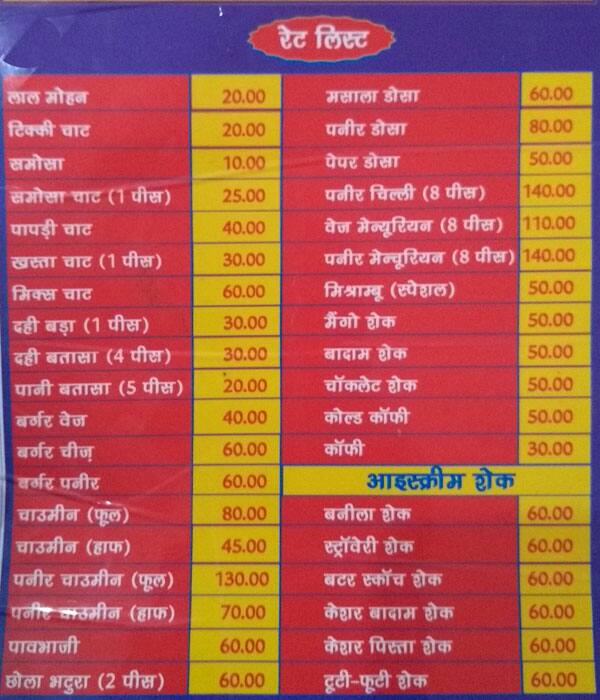 रेट लिस्ट
लाल मोहन 20.00
टिक्की चाट 20.00
समोसा 10.00
समोसा चाट (1 पीस) 25.00
पापड़ी चाट 40.00
खस्ता चाट (1 पीस) 30.00
मिक्स चाट 60.00
दही बड़ा (1 पीस) 30.00
दही बतासा (4 पीस) 30.00
पानी बतासा (5 पीस) 20.00
बर्गर वेज 40.00
बर्गर चीज़ 60.00
बर्गर पनीर 60.00
चाउमीन (फूल) 80.00
चाउमीन (हाफ) 45.00
पनीर चाउमीन (फूल) 130.00
पनीर चाउमीन (हाफ) 70.00
पावभाजी 60.00
छोला भटुरा (2 पीस) 60.00
मसाला डोसा 60.00
पनीर डोसा 80.00
पेपर डोसा 50.00
पनीर चिल्ली (8 पीस) 140.00
वेज मेन्यूरियन (8 पीस) 110.00
पनीर मेन्चूरियन (8 पीस) 140.00
मिश्राम्बू (स्पेशल) 50.00
मैंगो शेक 50.00
बादाम शेक 50.00
चॉकलेट शेक 50.00
कोल्ड कॉफी 50.00
कॉफी 30.00
आइस्क्रीम शेक
बनीला शेक 60.00
स्ट्रॉवेरी शेक 60.00
बटर स्कॉच शेक 60.00
केशर बादाम शेक 60.00
केशर पिस्ता शेक 60.00
टूटी-फूटी शेक 60.00